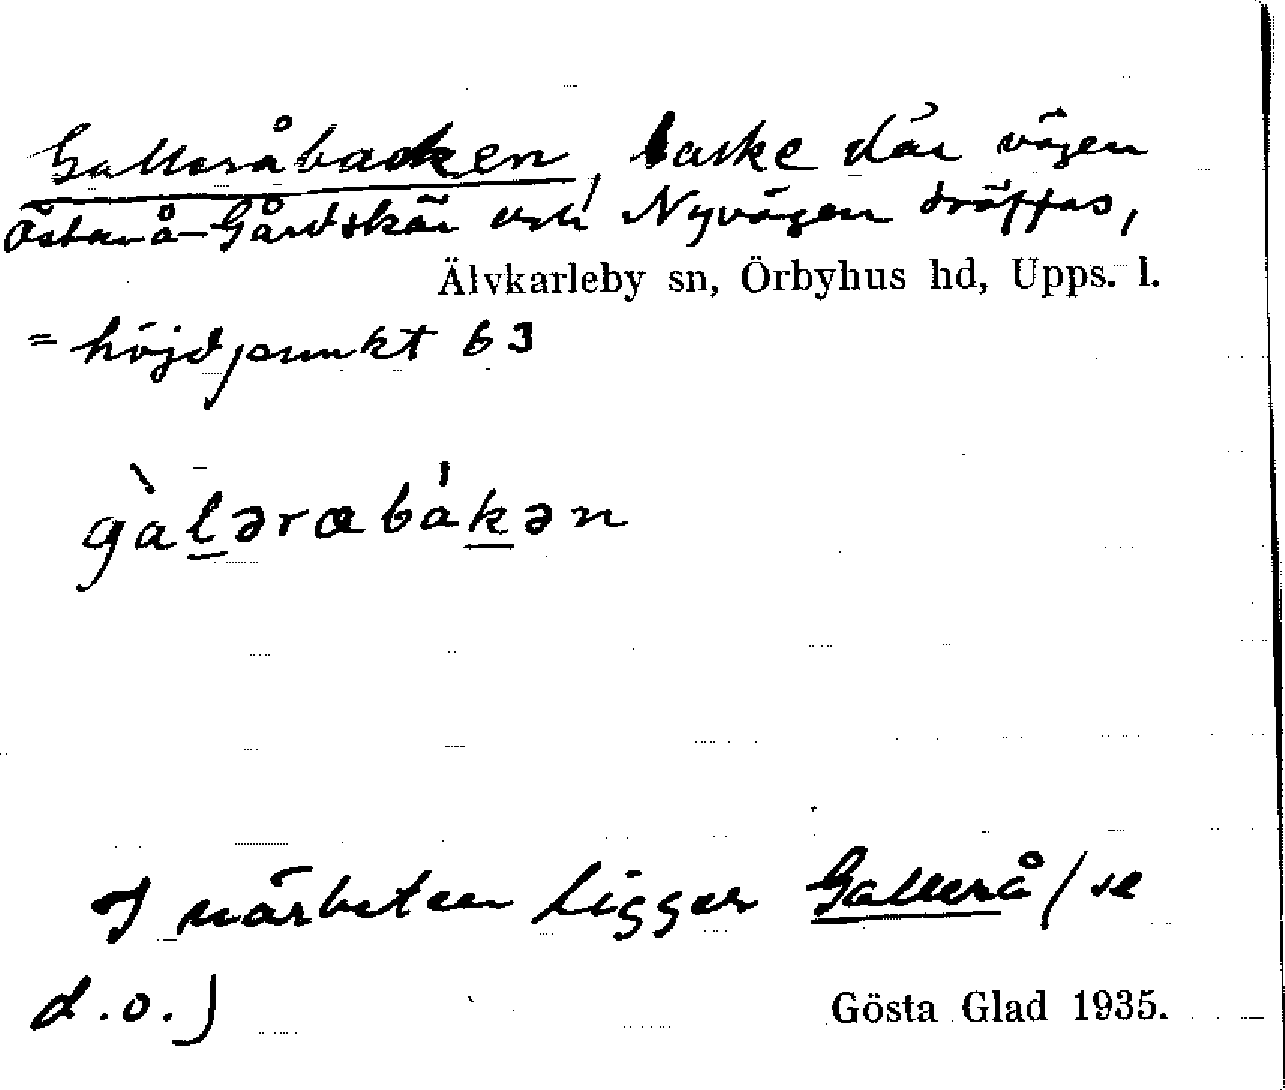 Galleråbacken, backe där vägen
Österå-Gårdskär och Nyvägen träffas,
Älvkarleby sn, Örbyhus hd, Upps. l.
= höjdpunkt 63
gàlərabákən
I närheten ligger Gallerå (se
d.o.)
Gösta Glad 1935.